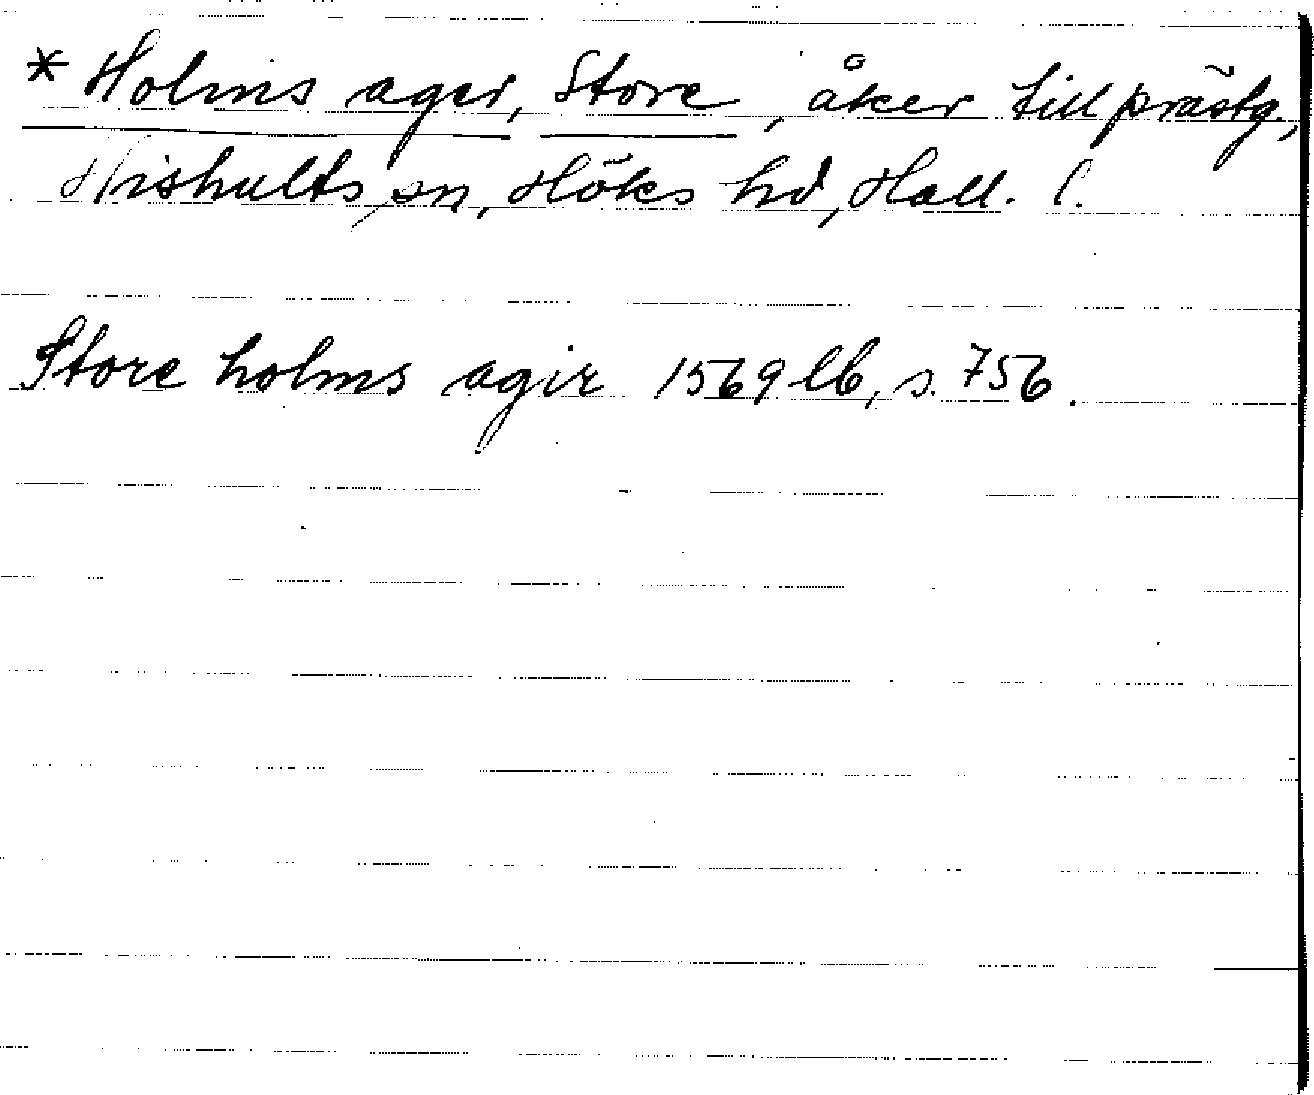 * Holms ager, Store, åker till prästg.,
Hishults sn, Höks hd, Hall. l.
Store holms agir 1569 lb, s. 756.